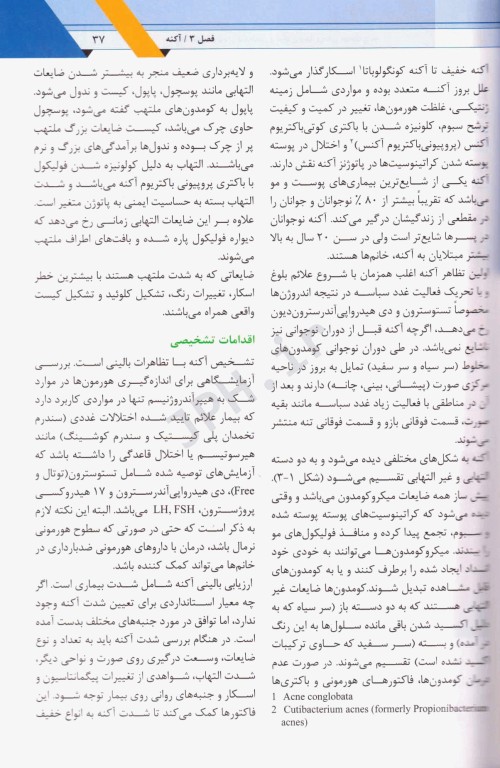 فصل ۳ / آکنه
۳۷
آکنه خفیف تا آکنه کونگولوباتا۱ اسکارگذار می‌شود.
علل بروز آکنه متعدد بوده و مواردی شامل زمینه
ژنتیکی، غلظت هورمون‌ها، تغییر در کمیت و کیفیت
ترشح سبوم، کلونیزه شدن با باکتری کوتی‌باکتریوم
آکنس (پروپیونی‌باکتریوم آکنس)۲ و اختلال در پوسته
پوسته شدن کراتینوسیت‌ها در پاتوژنز آکنه نقش دارند.
آکنه یکی از شایع‌ترین بیماری‌های پوست و مو
می‌باشد که تقریباً بیشتر از ۸۰ ٪ نوجوانان و جوانان را
در مقطعی از زندگیشان درگیر می‌کند. آکنه نوجوانان
در پسرها شایع‌تر است ولی در سن ۲۰ سال به بالا
بیشتر مبتلایان به آکنه، خانم‌ها هستند.
اولین تظاهر آکنه اغلب همزمان با شروع علائم بلوغ
و با تحریک فعالیت غدد سباسه در نتیجه اندروژن‌ها
مخصوصاً تستوسترون و دی هیدرواپی‌آندرسترون‌دیون
رخ می‌دهد، اگرچه آکنه قبل از دوران نوجوانی نیز
ناشایع نمی‌باشد. در طی دوران نوجوانی کومدون‌های
مخلوط (سر سیاه و سر سفید) تمایل به بروز در ناحیه
مرکزی صورت (پیشانی، بینی، چانه) دارند و بعد از
آن در مناطقی با فعالیت زیاد غدد سباسه مانند بقیه
صورت، قسمت فوقانی بازو و قسمت فوقانی تنه منتشر
می‌شوند.
آکنه به شکل‌های مختلفی دیده می‌شود و به دو دسته
التهابی و غیر التهابی تقسیم می‌شود (شکل ۱-۳).
پیش ساز همه ضایعات میکروکومدون می‌باشد و وقتی
دیده می‌شود که کراتینوسیت‌های پوسته پوسته شده
و سبوم، تجمع پیدا کرده و منافذ فولیکول‌های مو
را ببندند. میکروکومدون‌ها می‌توانند به خودی خود
انسداد ایجاد شده را برطرف کنند و یا به کومدون‌های
قابل مشاهده تبدیل شوند.کومدون‌ها ضایعات غیر
التهابی هستند که به دو دسته باز (سر سیاه که به
دلیل اکسید شدن باقی مانده سلول‌ها به این رنگ
در آمده) و بسته (سر سفید که حاوی ترکیبات
اکسید نشده است) تقسیم می‌شوند. در صورت عدم
درمان کومدون‌ها، فاکتورهای هورمونی و باکتری‌ها
1 Acne conglobata
2 Cutibacterium acnes (formerly Propionibacterium
acnes)
و لایه‌برداری ضعیف منجر به بیشتر شدن ضایعات
التهابی مانند پوسچول، پاپول، کیست و ندول می‌شود.
پاپول به کومدون‌های ملتهب گفته می‌شود، پوسچول
حاوی چرک می‌باشد، کیست ضایعات بزرگ ملتهب
پر از چرک بوده و ندول‌ها برآمدگی‌های بزرگ و نرم
می‌باشند. التهاب به دلیل کولونیزه شدن فولیکول
با باکتری پروپیونی باکتریوم آکنه می‌باشد و شدت
التهاب بسته به حساسیت ایمنی به پاتوژن متغیر است.
علاوه بر این ضایعات التهابی زمانی رخ می‌دهد که
دیواره فولیکول پاره شده و بافت‌های اطراف ملتهب
می‌شوند.
ضایعاتی که به شدت ملتهب هستند با بیشترین خطر
اسکار، تغییرات رنگ، تشکیل کلوئید و تشکیل کیست
واقعی همراه می‌باشند.
اقدامات تشخیصی
تشخیص آکنه با تظاهرات بالینی است. بررسی
آزمایشگاهی برای اندازه‌گیری هورمون‌ها در موارد
شک به هیپرآندروژنیسم تنها در مواردی کاربرد دارد
که بیمار علائم تایید شده اختلالات غددی (سندرم
تخمدان پلی کیستیک و سندرم کوشینگ) مانند
هیرسوتیسم یا اختلال قاعدگی را داشته باشد که
آزمایش‌های توصیه شده شامل تستوسترون(توتال و
Free)، دی هیدرواپی‌آندرسترون و ۱۷ هیدروکسی
پروژسترون، LH, FSH می‌باشد. البته این نکته لازم
به ذکر است که حتی در صورتی که سطوح هورمونی
نرمال باشد، درمان با داروهای هورمونی ضدبارداری در
خانم‌ها می‌تواند کمک کننده باشد.
ارزیابی بالینی آکنه شامل شدت بیماری است. اگر
چه معیار استانداردی برای تعیین شدت آکنه وجود
ندارد، اما توافق در مورد جنبه‌های مختلف بدست آمده
است. در هنگام بررسی شدت آکنه باید به تعداد و نوع
ضایعات، وسعت درگیری روی صورت و نواحی دیگر،
شدت التهاب، شواهدی از تغییرات پیگمانتاسیون و
اسکار و جنبه‌های روانی روی بیمار توجه شود. این
فاکتورها کمک می‌کند تا شدت آکنه به انواع خفیف